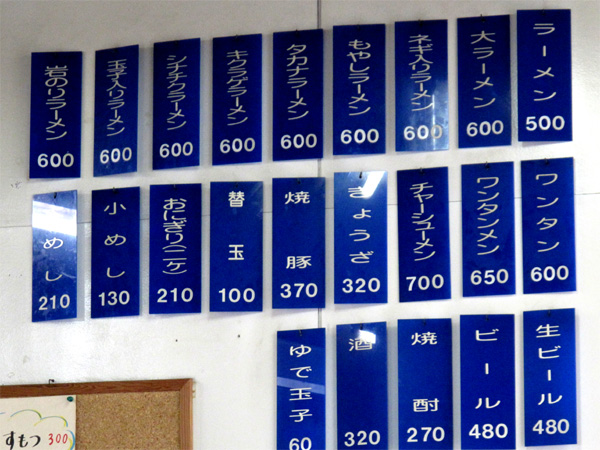 ラーメン
500
大ラーメン
600
ネギ入りラーメン
600
もやしラーメン
600
タカナラーメン
600
キクラゲラーメン
600
シナチクラーメン
600
玉子入りラーメン
600
岩のりラーメン
600
ワンタン
600
ワンタンメン
650
チャーシューメン
700
ぎょうざ
320
焼豚
370
替玉
100
おにぎり(二ケ)
210
小めし
130
めし
210
生ビール
480
ビール
480
焼酎
270
酒
320
ゆで玉子
60
すもつ 300